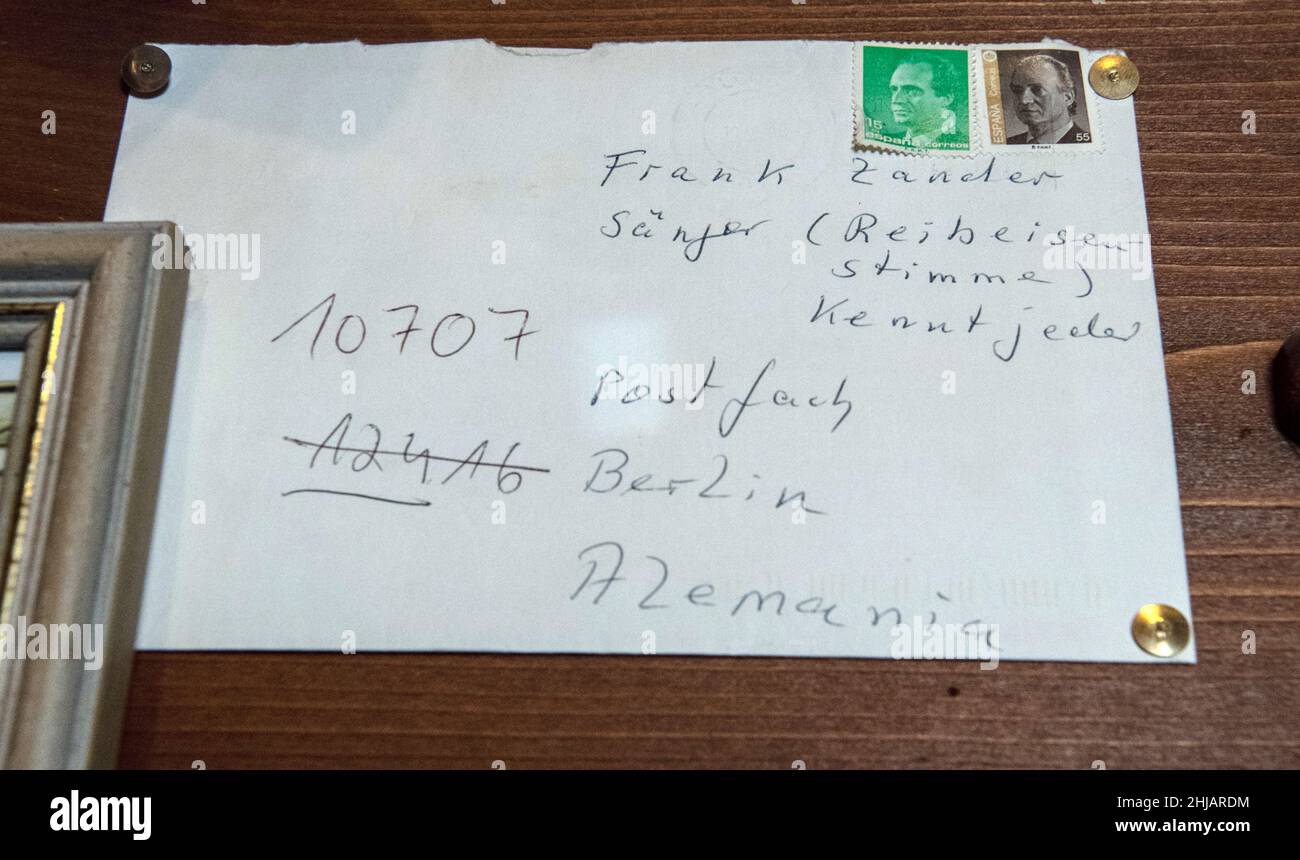 15
España correos
ESPAÑA Correos
55
Frank Zander
Sänger (Reibeisen
stimme)
Kennt jeder
10707
Postfach
12416
Berlin
Alemania
alamy
Image ID: 2HJARDM
www.alamy.com